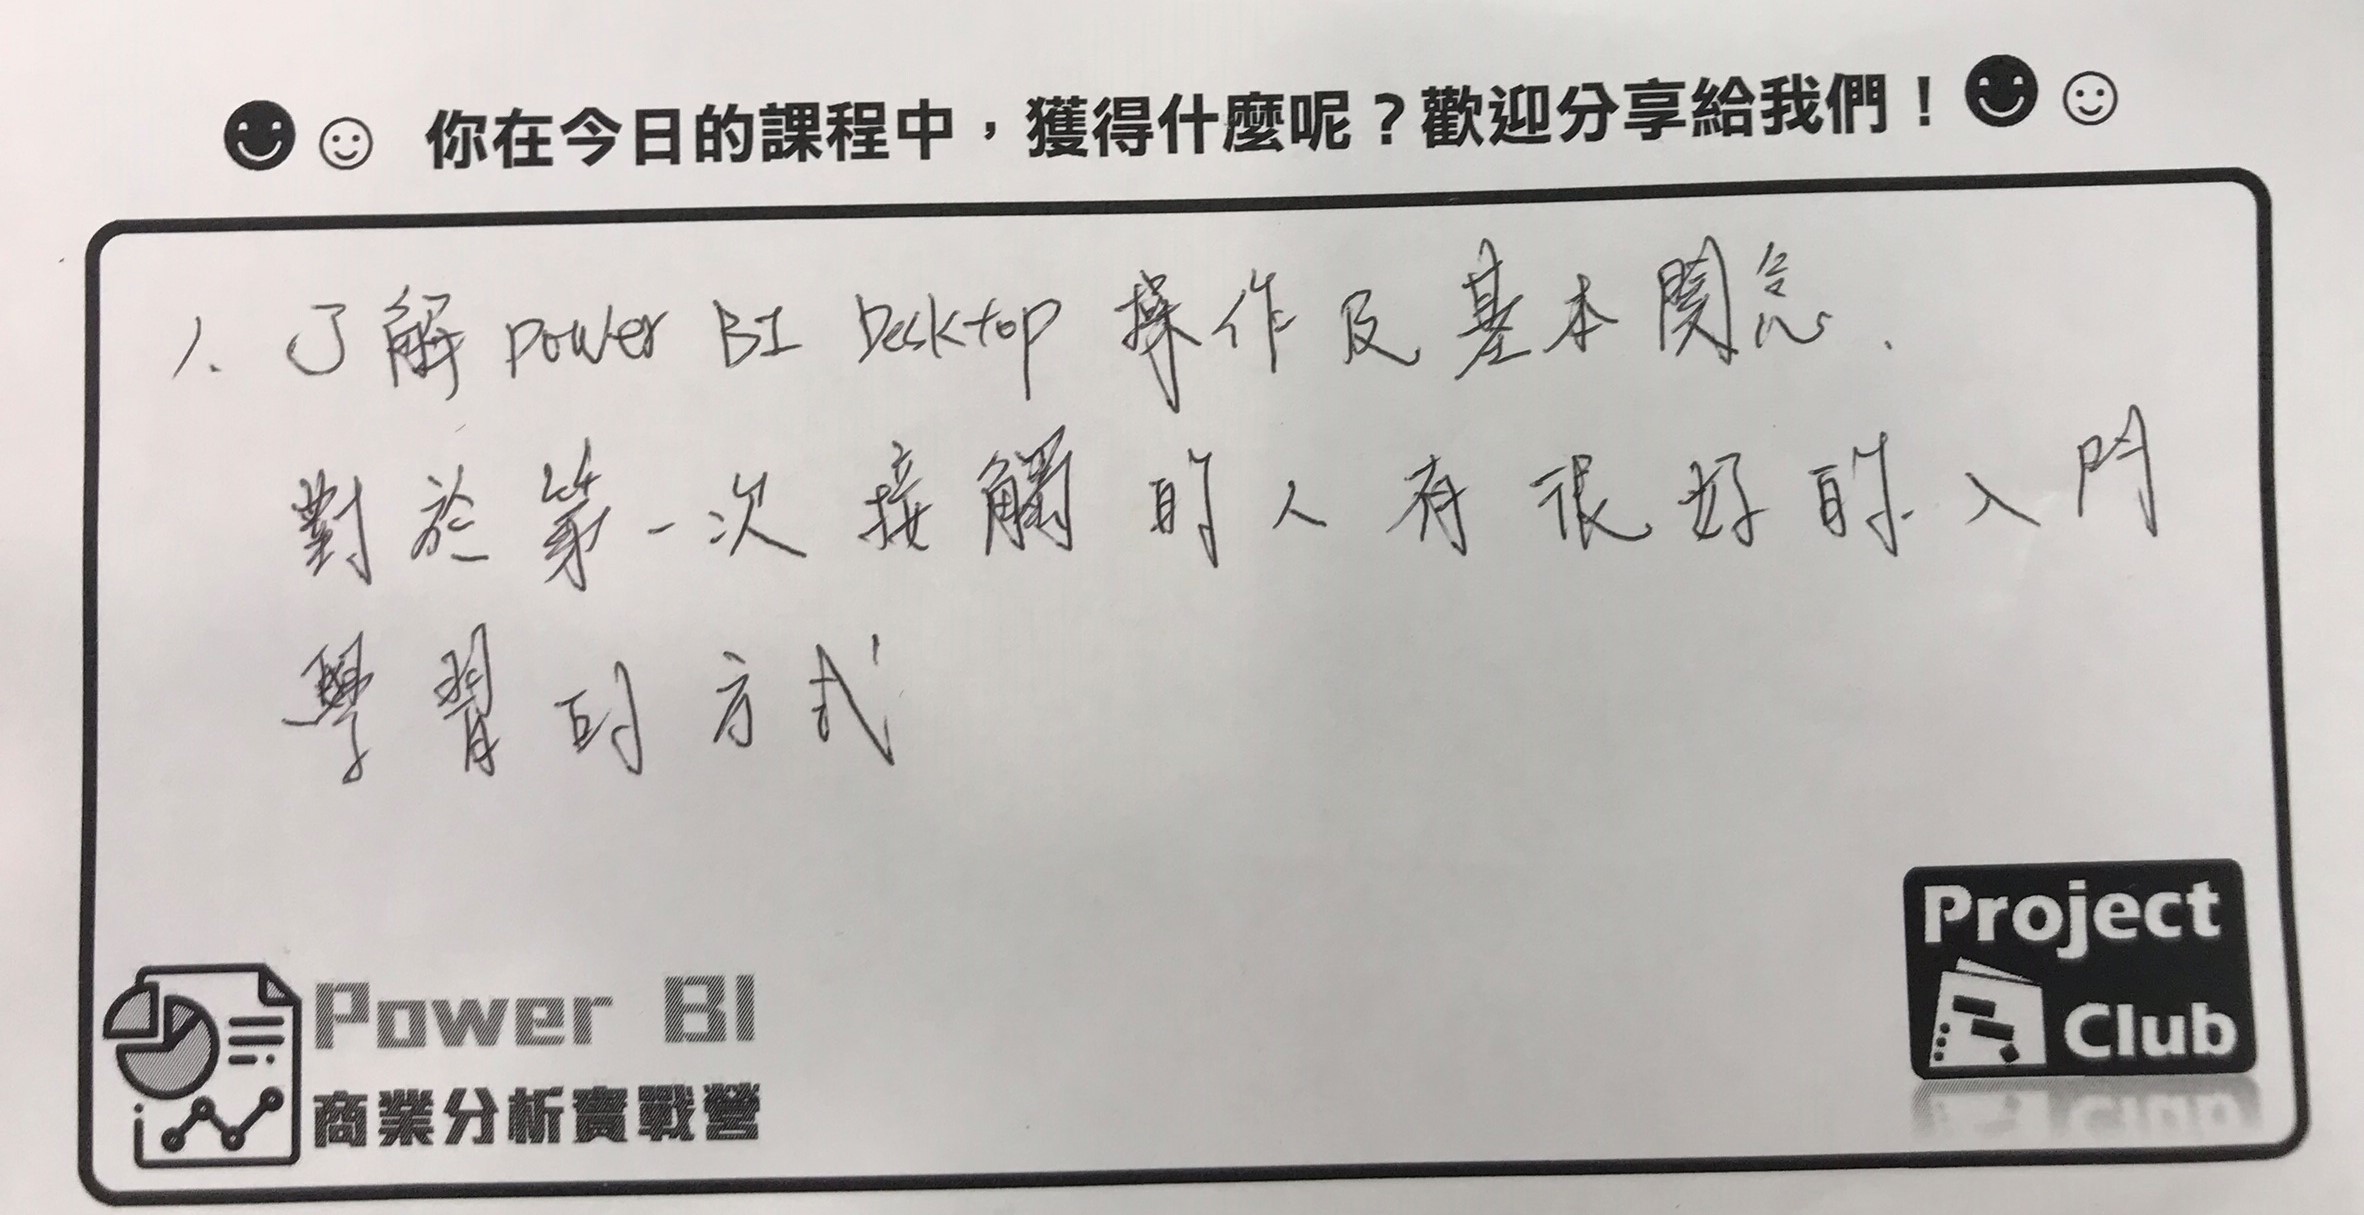 你在今日的課程中，獲得什麼呢？歡迎分享給我們！
1. 了解 power BI Desktop 操作及基本関念.
對於第一次接觸的人有很好的入門
學習的方式
Power BI
商業分析實戰營
Project
Club